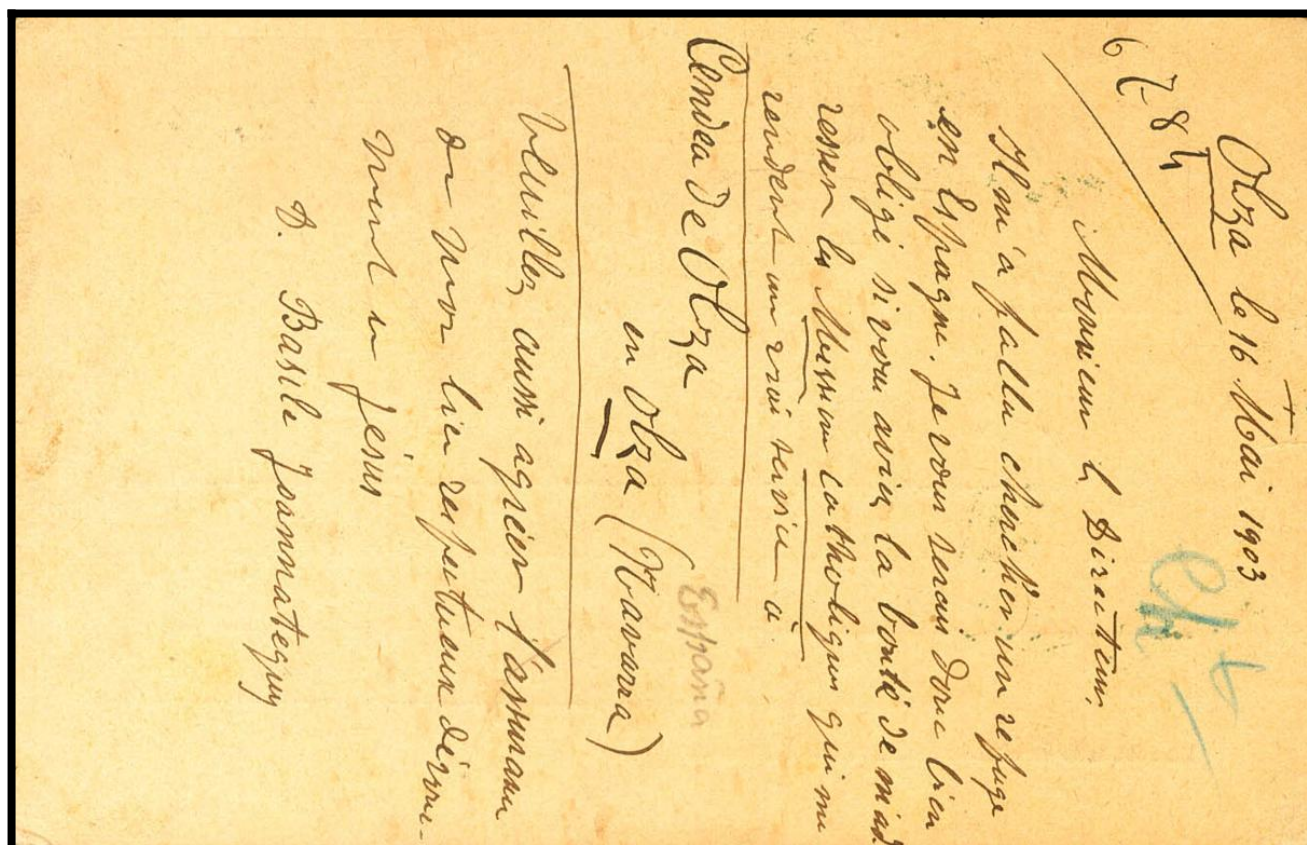 Olza le 16 Mai 1903
6 7-8 h
Monsieur le Directeur,
Il m'a fallu chercher un refuge
en Espagne. Je vous serais donc bien
obligé si vous aviez la bonté de m'ad
resser les Missions catholiques qui me
rendent un vrai service à
Cendea de Olza
en Olza (Navarra)
España
Veuillez aussi agréer l'assurance
de mon bien respectueux dévoue-
ment en Jésus
D. Basile Joannateguy